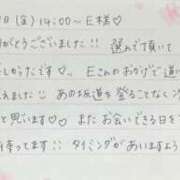 日(金)14:00〜E様♡
がとうございました!! 選んで頂いて
しかったです♡、Eさんのおかげで違い
えました! あの坂道を登ることなく済
と思います♡ またお会いできる日を
待ってます!! タイミングがあいますよう